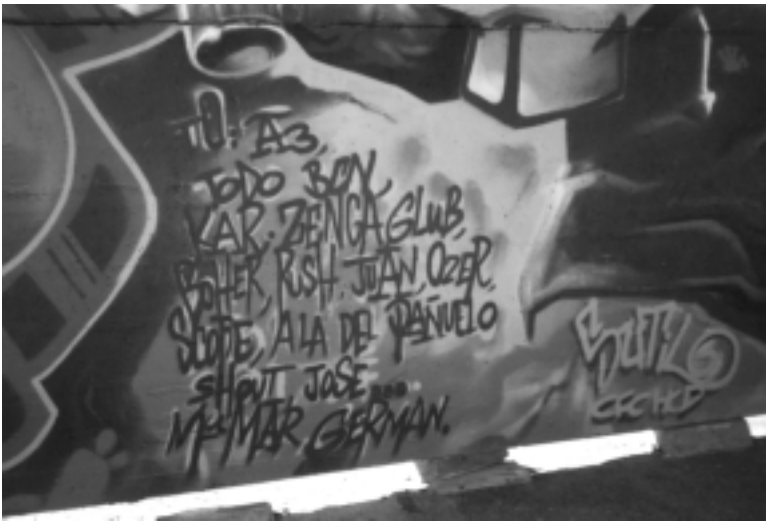 TO: A3,
TODO BCN,
KAR. ZENGA GLUB,
BOHER, RISH. JUAN, OZER,
SCOPE, A LA DEL PAÑUELO
SHOUT JOSE...
MAR GERMAN.
SUTIL